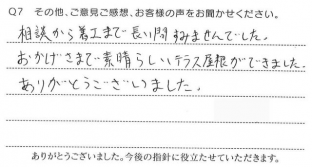 Q7 その他、ご意見ご感想、お客様の声をお聞かせください。
相談から着工まで長い間すみませんでした。
おかげさまで素晴らしいテラス屋根ができました。
ありがとうございました。
ありがとうございました。今後の指針に役立たせていただきます。